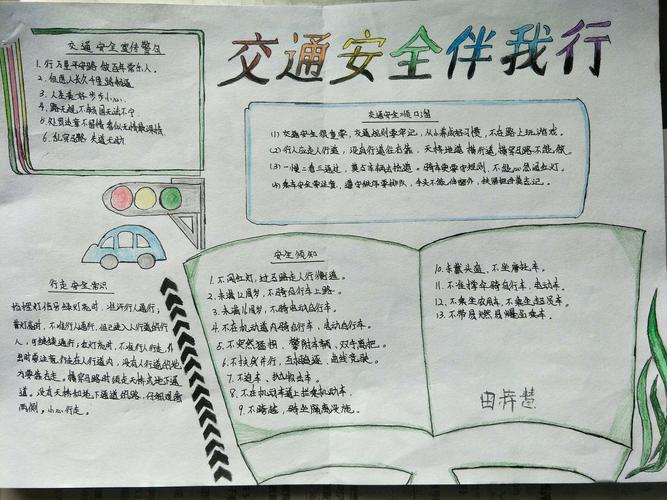 交通安全伴我行
交通安全宣传警句
1. 行万里平安路 做百年常乐人。
2. 但愿人长久 千里路畅通
3. 人生美好 步步小心
4. 路无规不畅 国无法不宁
5. 处罚违章不留情 看似无情最深情
6. 乱穿马路 失道无助
交通安全顺口溜
(1) 交通安全很重要，交通规则要牢记，从小养成好习惯，不在路上玩游戏。
(2) 行人应走人行道，没有行道往右靠，天桥地道横行道，横穿马路不能做。
(3) 一慢二看三通过，莫与车辆去抢道。骑车更要守规则，不能心急闯红灯。
(4) 乘车安全要注意，遵守秩序要排队，手头不能伸窗外，扶紧把手莫忘记。
行走安全常识
指挥灯信号绿灯亮时，准许行人通行；
黄灯亮时，不准行人通行，但已进入人行道的行
人，可继续通行；红灯亮时，不准行人行走，外
出时要注意：行走在人行道内，没有人行道的地
方要靠右走。横穿马路时须走天桥或地下通
道。没有天桥和地下通道的路，仔细观察
两侧，小心行走。
安全须知
1. 不闯红灯，过马路走人行横道。
2. 未满12周岁，不骑自行车上路。
3. 未满16周岁，不骑电动自行车。
4. 不在机动道内骑自行车、电动自行车。
5. 不突然猛拐、攀附车辆、双手离把。
6. 不扶身并行、互相追逐、曲线竞驶。
7. 不追车、扒车抛击车。
8. 不在机动车道上拦乘机动车。
9. 不跨越、跨坐隔离设施。
10. 未戴头盔，不坐摩托车。
11. 不准撑伞骑自行车、电动车。
12. 不乘坐农用车、不乘坐超员车。
13. 不带易燃易爆品乘车。